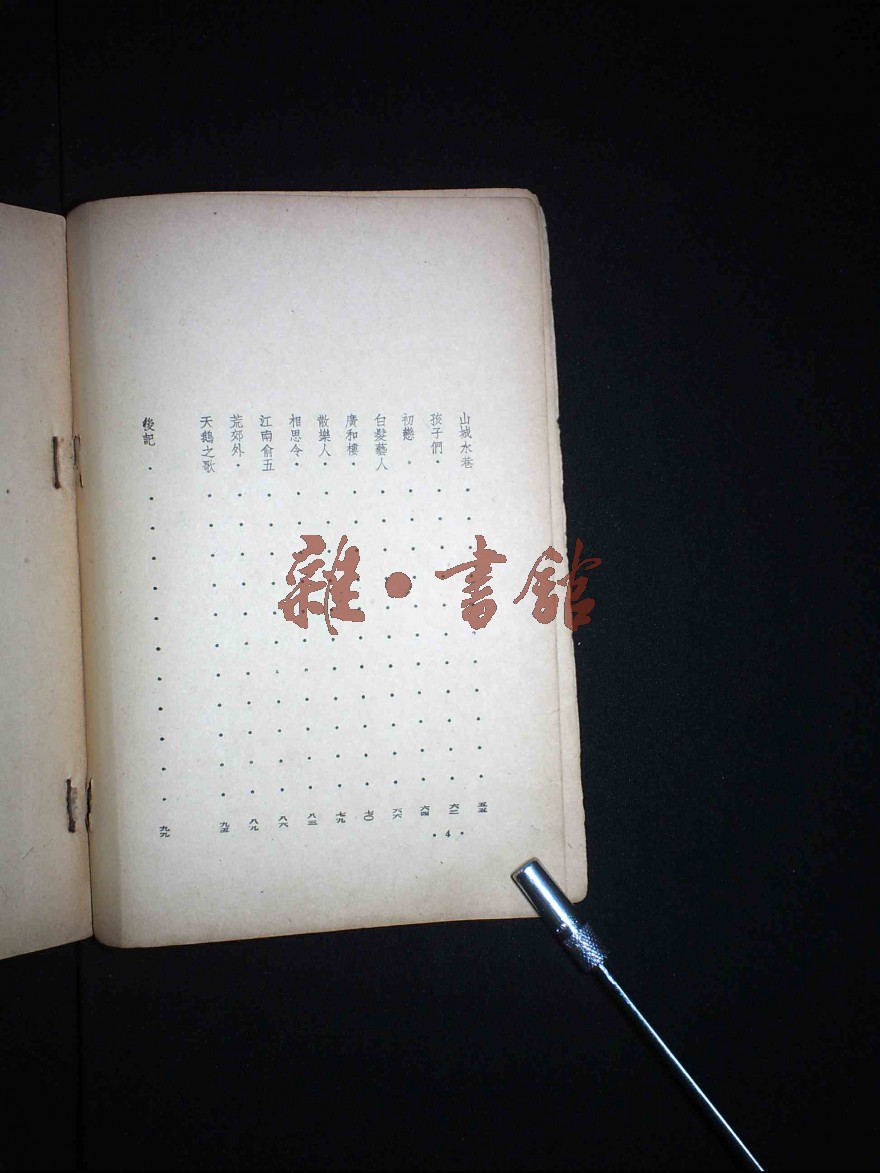 山城水巷・・・・・・・・・・・五五
孩子們・・・・・・・・・・・・六二
初戀・・・・・・・・・・・・六四
白髮藝人・・・・・・・・・・・六六
廣和樓・・・・・・・・・・・・七〇
散樂人・・・・・・・・・・・・七九
相思令・・・・・・・・・・・・八三
江南俞五・・・・・・・・・・・八六
荒郊外・・・・・・・・・・・・八九
天鵝之歌・・・・・・・・・・・九五
後記・・・・・・・・・・・・九九
・4・
雜・書館